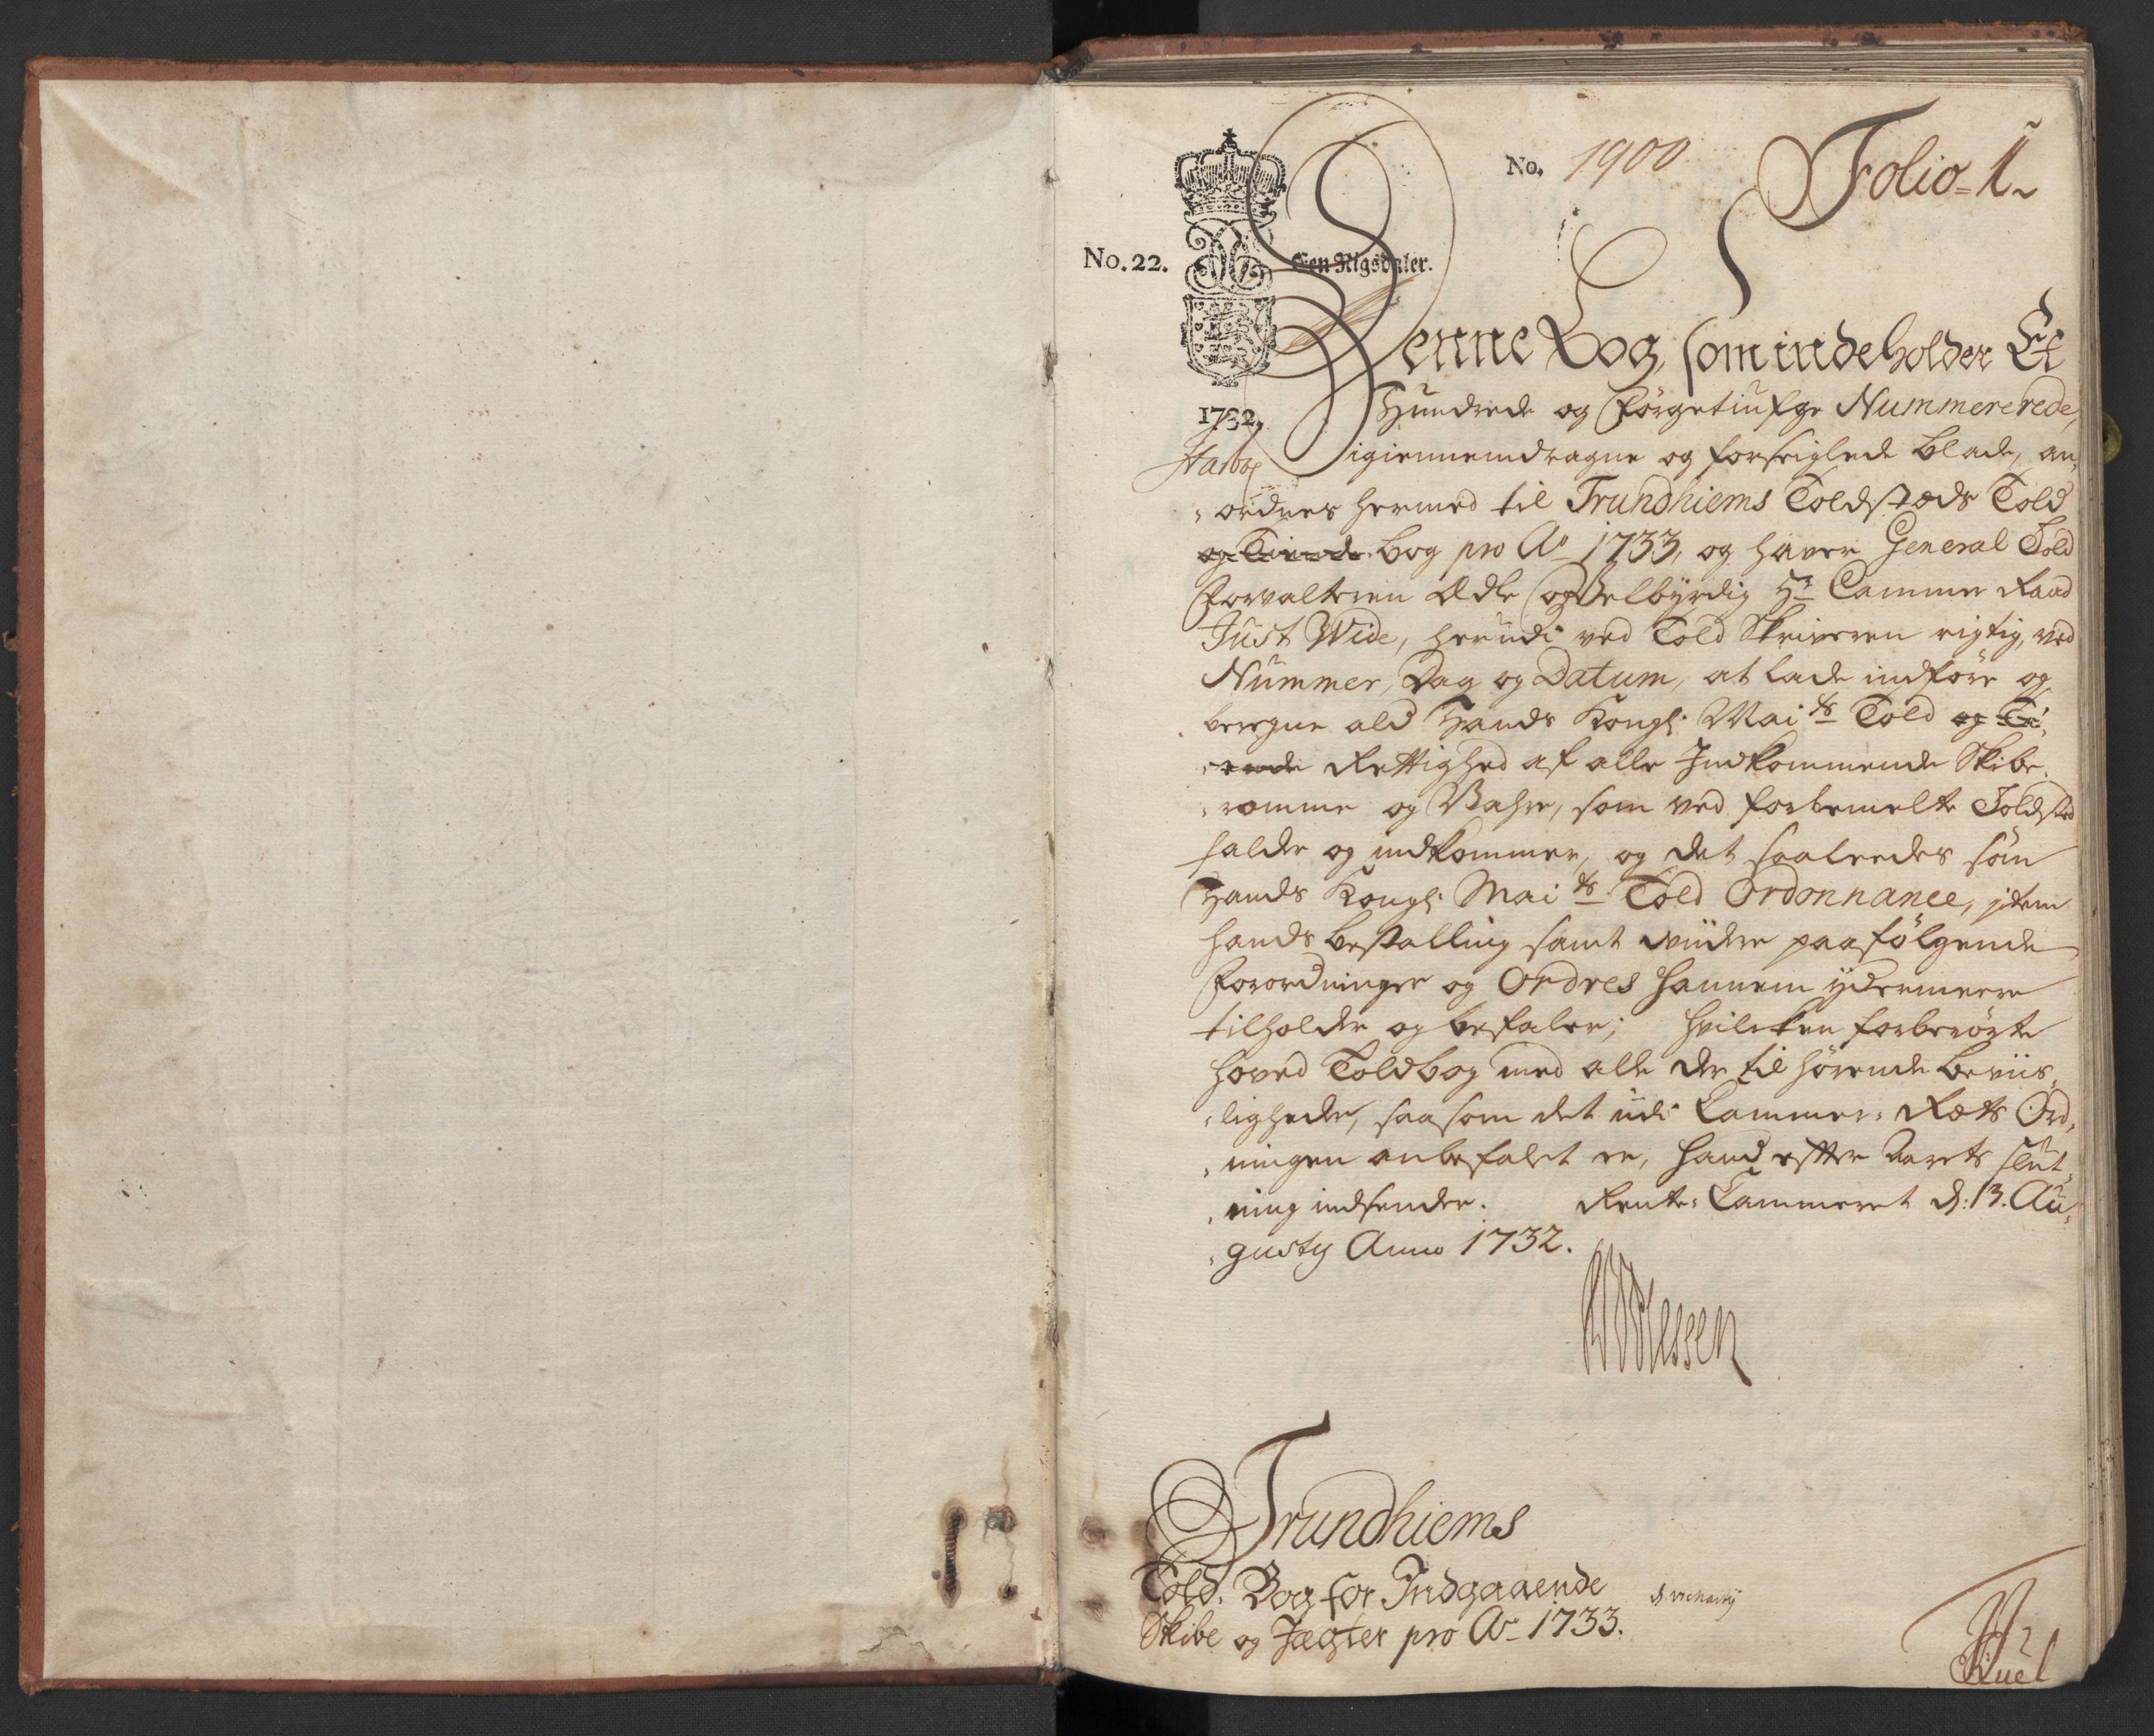 No. 1900
Folio = 1.
No. 22.
Een Rigsdaler.
Denne Bog, som indeholder Et
1732.
Hundrede og Førgetiufge Nummererede,
igiennemdragne og forseiglede blade, an„
„ordnes hermed til Trundhiems Toldstæds Told
og Tiende bog pro Ao 1733, og haver General Told
Forvalteren Ædle og Velbyrdig Hr Cammer Raad
Just Wide, herudi ved Told Skriveren rigtig, ved
Nummer, Dag og Datum, at lade indføre og
beregne ald Hands Kongl: Maits Told og Ti„
„ende Rettighed af alle Indkommende Skibe„
„romme og Vahre, som ved forbemelte Toldsted
falder og indkommer, og det saaledes som
Hands Kongl: Maits Told Ordonnance, item
hands bestalling samt videre paafølgende
Forordninger og Ordres hannem ydermeere
tilholder og befaler; hvilcken forberørte
hoved Toldbog med alle der til hørende beviis„
„ligheder, saasom det udi Cammer-Rætts Ord„
„ningen anbefalet er, hand efter Aarets slut„
„ning indsender. Rente-Cammeret d: 13. Au„
„gusty Anno 1732.
Trundhiems
Told. Bog for Indgaaende
Skibe og Jægter pro Ao 1733.